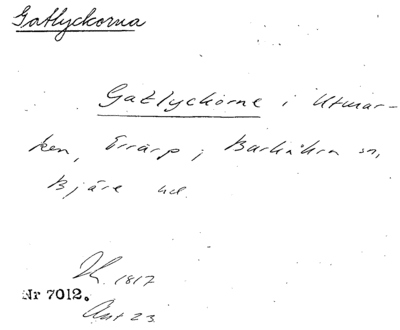 Gatlyckorna
Gatlyckorne i Utmar-
ken, Errarp i Barkåkra sn,
Bjäre hd.
1817
Nr 7012.
Akt 23.